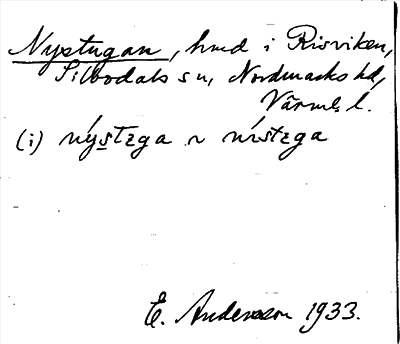 Nystugan, hmd i Risviken,
Silbodals sn, Nordmarks hd,
Värml. l.
(i) nýstɛga ~ nístɛga
E. Andersson 1933.